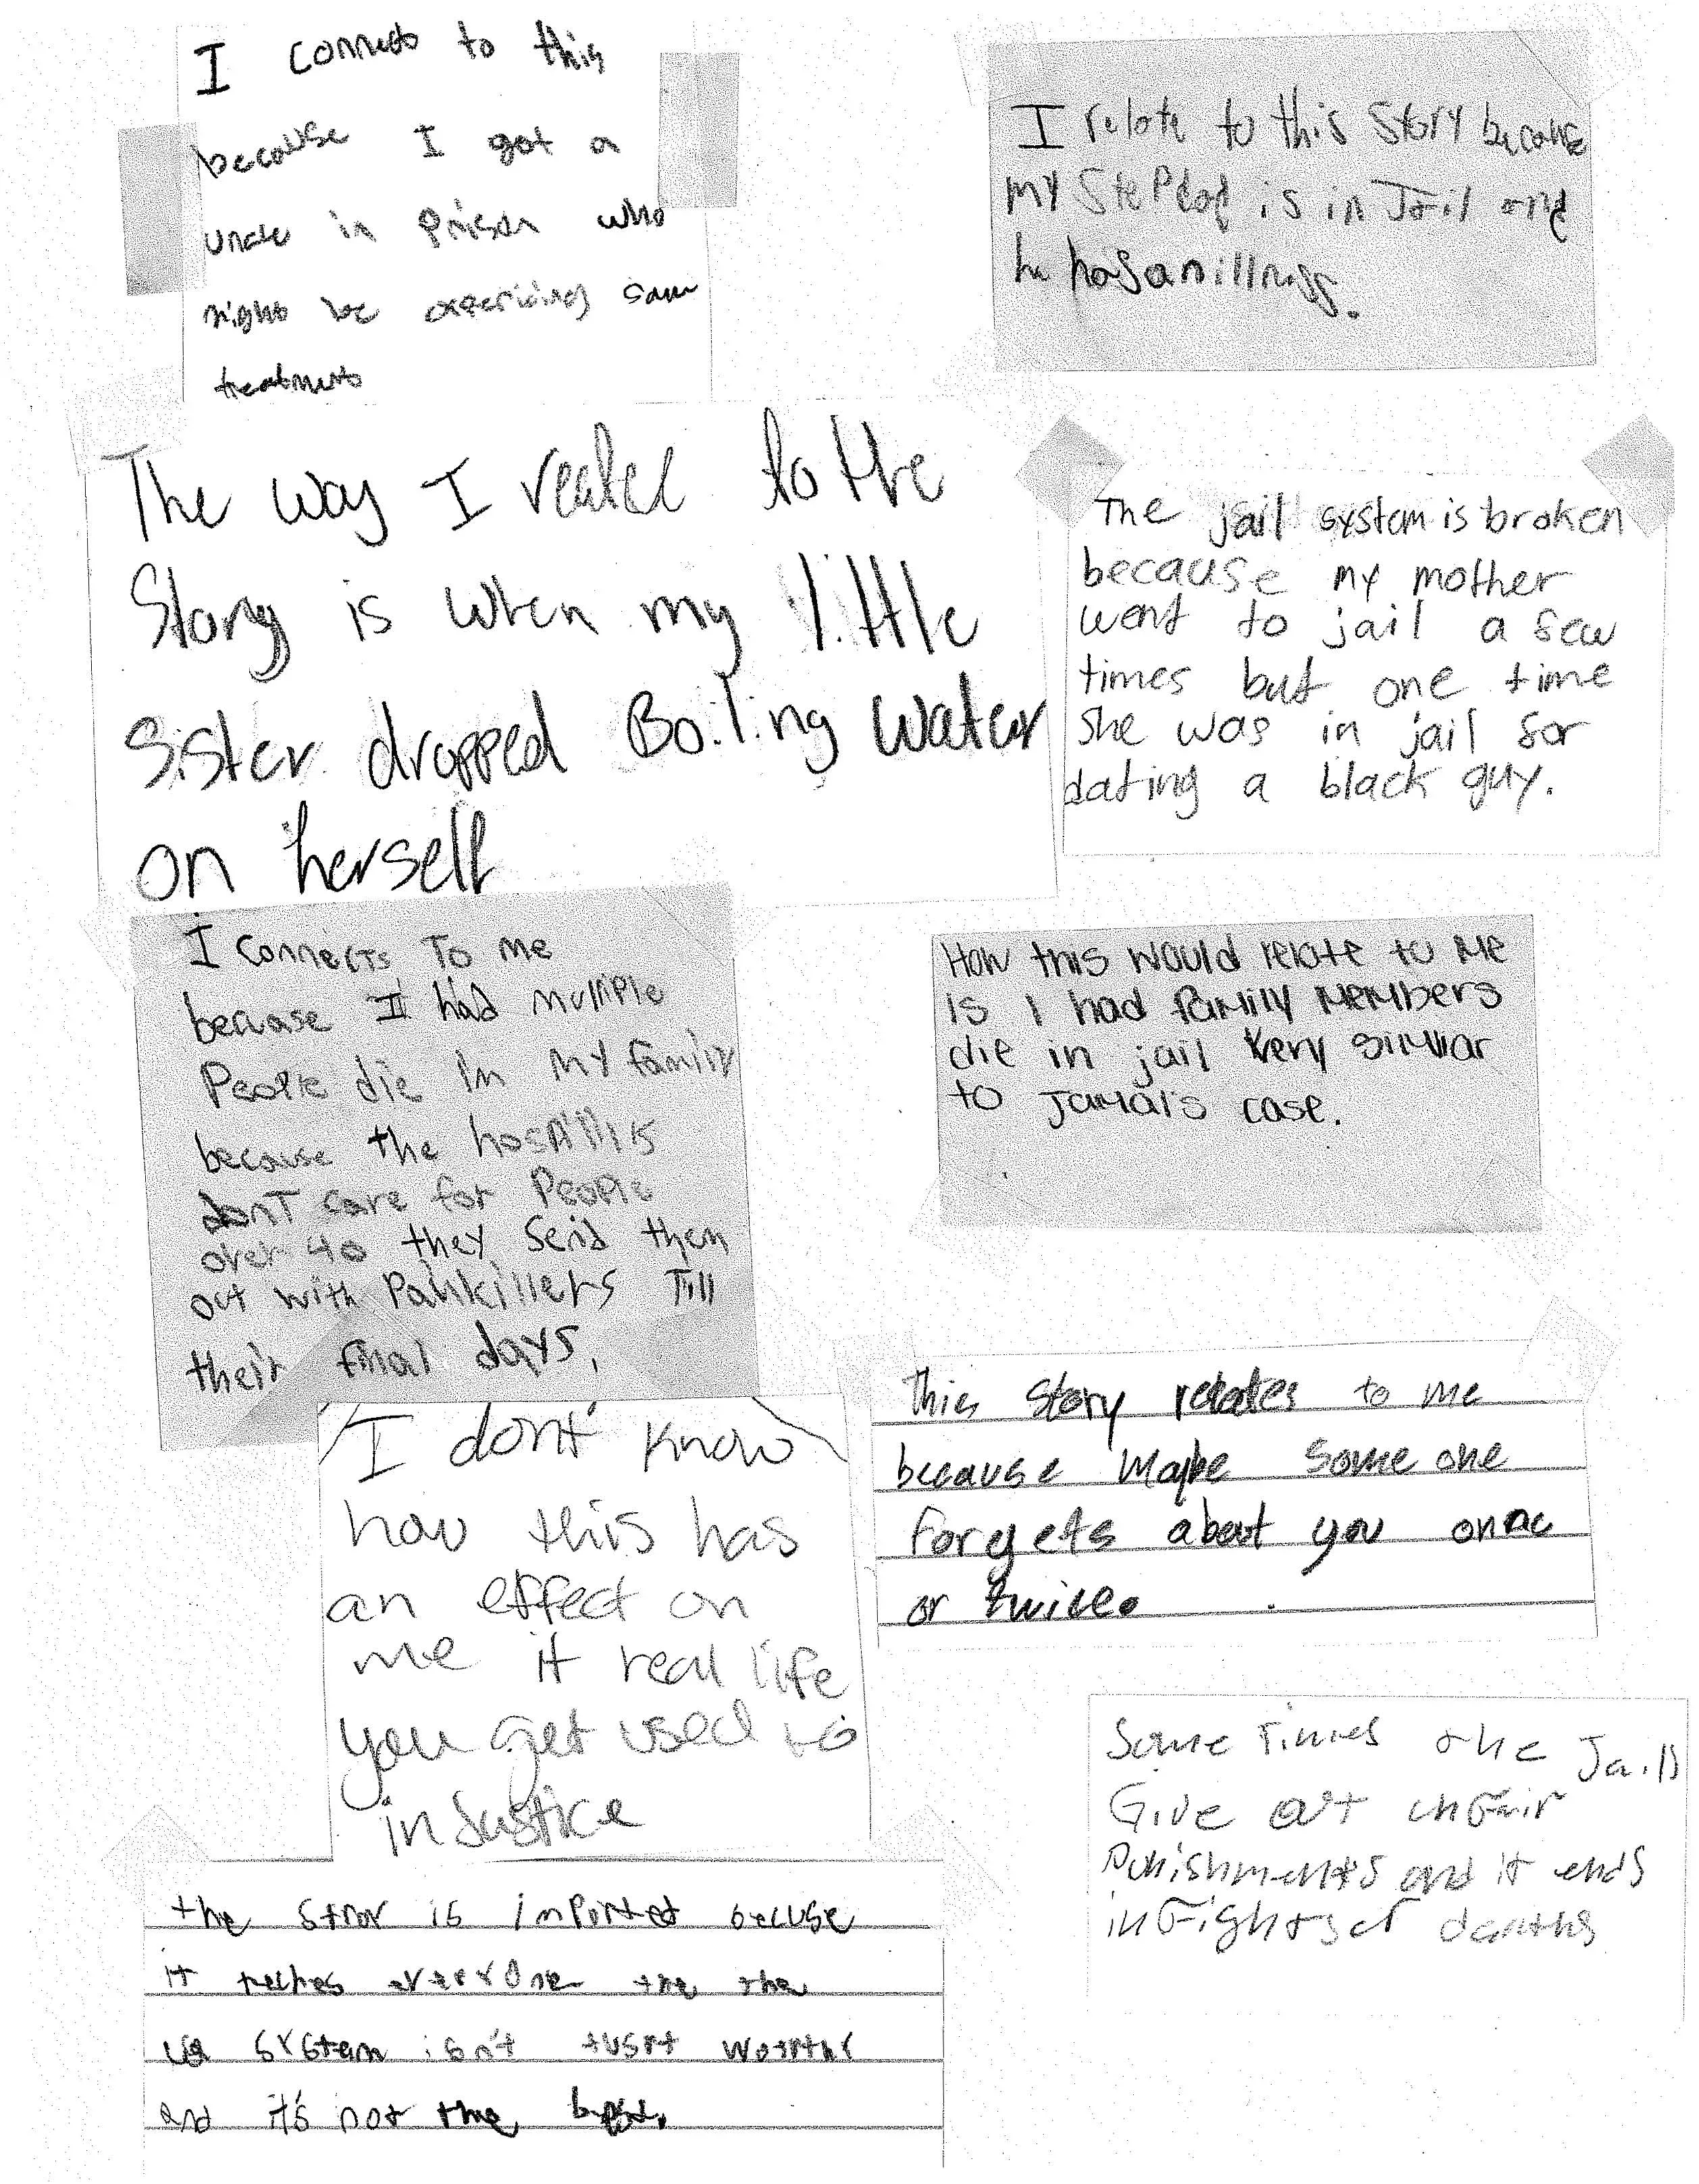 I connect to this
because I got a
uncle in prison who
might be experiencing same
treatments
I relate to this Story because
my StePdad is in Jail and
he has an illness.
The way I reatee to the
Story is when my little
Sister dropped Boiling water
on herself
The jail system is broken
because my mother
went to jail a few
times but one time
she was in jail for
dating a black guy.
I connects To me
because I had multiple
People die in my family
because the hospitals
don't care for People
over 40 they send them
out with Painkillers Till
their final days,
How this would relate to Me
is I had family Members
die in jail very similiar
to Jamal's case.
I dont know
how this has
an effect on
me it real life
you get used to
injustice
This Story relates to me
because Maybe Some one
Forgets about you once
or twice.
Some Times the Jails
Give out unfair
Punishments and it ends
in Fights or deaths
the is important because
it everyone the the
us system isn't worthy
and it's not the best.